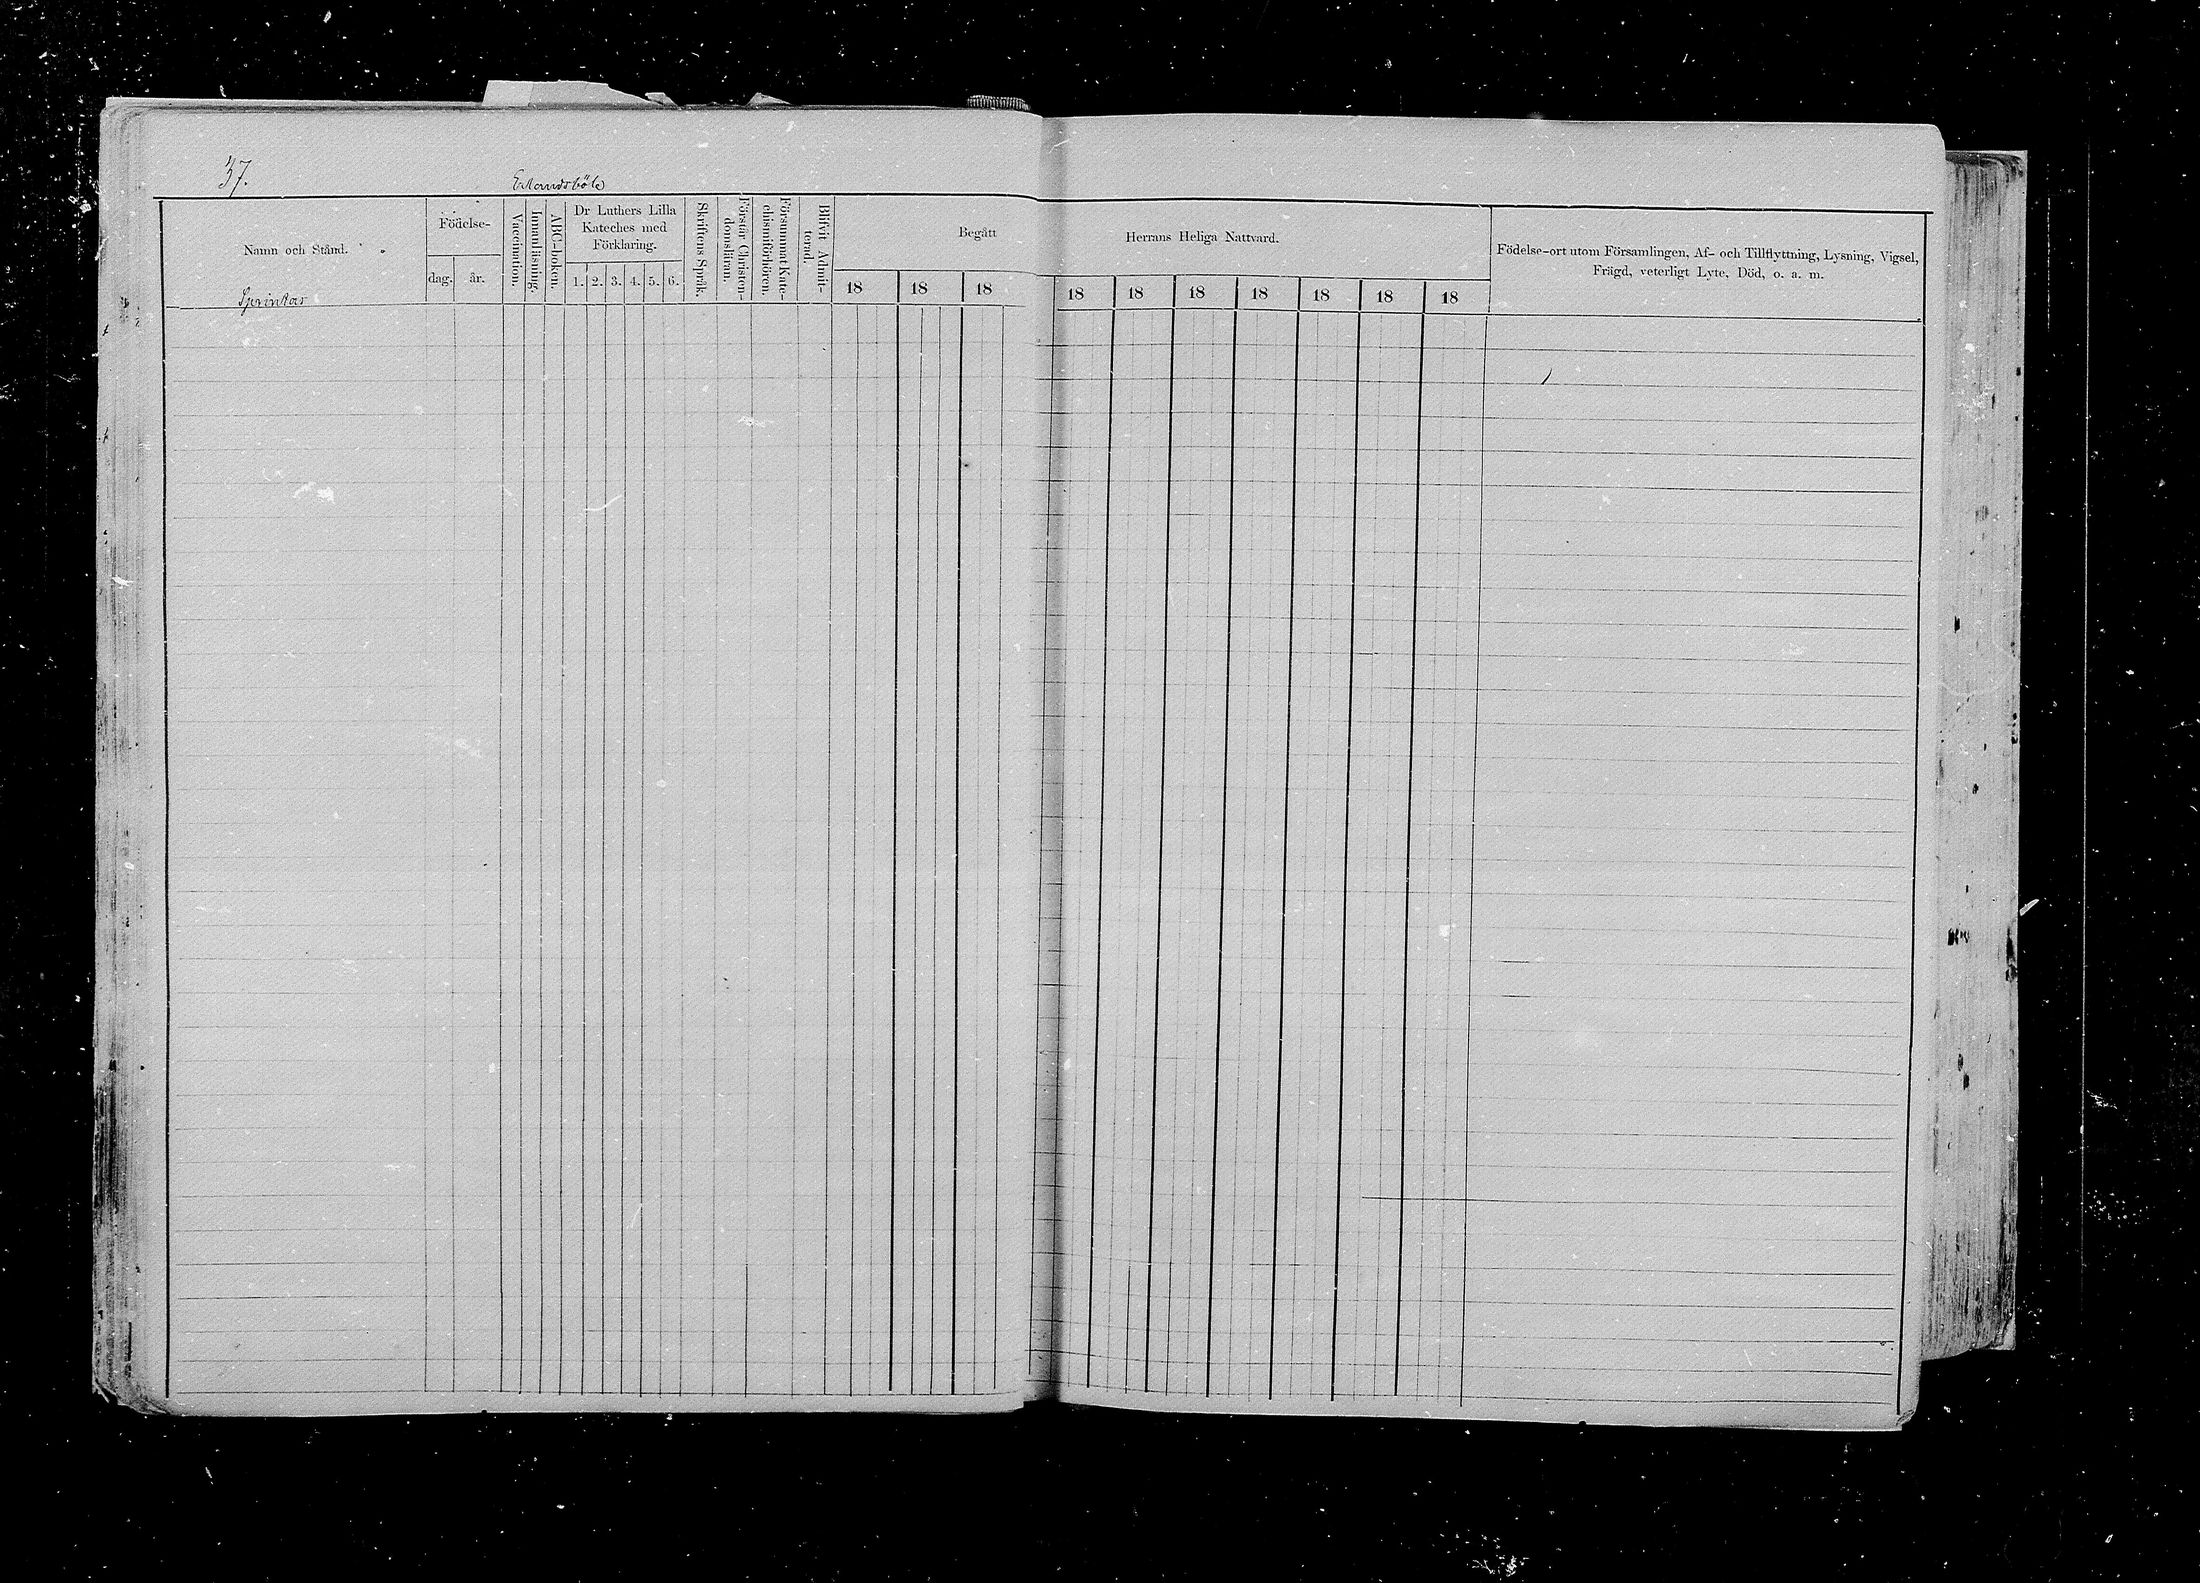 37.
Erlandsböle
Namn och Stånd.
Sprintas
Födelse-
dag.
år.
Vaccination.
Innanläsning.
ABC-boken.
Dr Luthers Lilla
Kateches med
Förklaring.
1. 2. 3. 4. 5. 6.
Skriftens Språk.
Förstår Christen-
domsläran.
Försummat Kate-
chismiförhören.
Blifvit Admit-
terad.
Begått
18 18 18
Herrans Heliga Nattvard.
18 18 18 18 18 18 18
Födelse-ort utom Församlingen, Af- och Tillflyttning, Lysning, Vigsel,
Frägd, veterligt Lyte, Död, o. a. m.